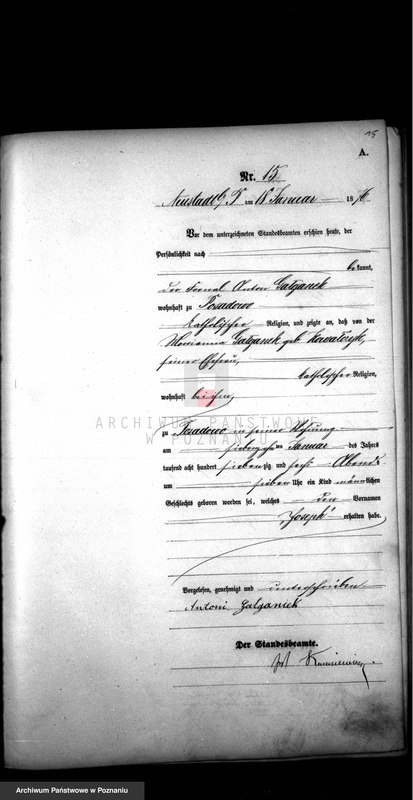 15
A.
Nr. 15
Neustadt b/P am 18 Januar 1876
Vor dem unterzeichneten Standesbeamten erschien heute, der
Persönlichkeit nach
bekannt,
der Fornal Anton Galganek
wohnhaft zu Posadowo
katholischer Religion, und zeigte an, daß von der
Marianna Galganek geb
seiner Ehefrau,
katholischer Religion,
wohnhaft bei ihm,
ARCHIWUM PAŃSTWOWE
W POZNANIU
zu Posadowo in seiner Wohnung
am ten Januar des Jahres
tausend acht hundert siebenzig und sechs Abends
um sieben Uhr ein Kind männlichen
Geschlechts geboren worden sei, welches den Vornamen
"Joseph" erhalten habe.
Vorgelesen, genehmigt und unterschrieben
Antoni Galganek
Der Standesbeamte.
Archiwum Państwowe w Poznaniu